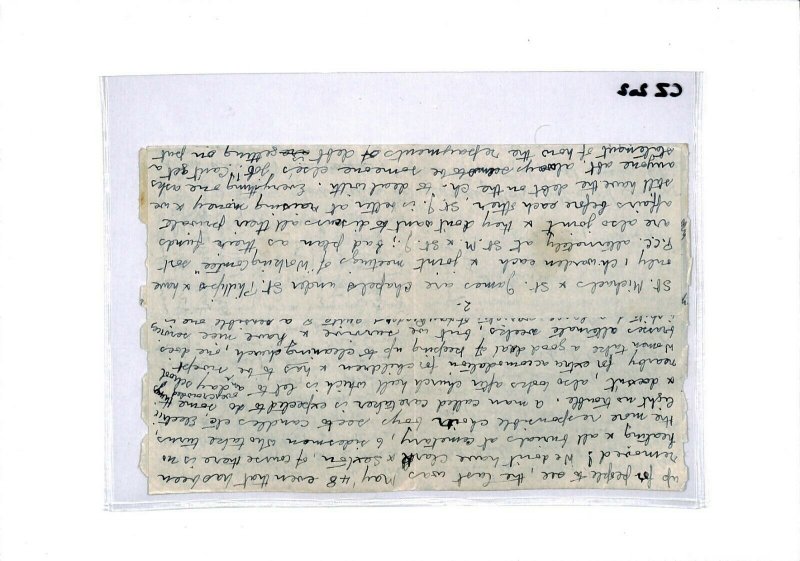 up for people to see, the last was May 48 even that had been
removed! We don't have Clerk x Sexton, of course there is no
heating x all burials at cemetary, 6 sidesmen who take turns,
the more responsible choir boys see to candles etc Electric
light no trouble. A man called caretaker is expected to do some things
x doesn't, also looks after church hall which is let to an overcrowded day school
nearby for extra accomodation for children x has to be swept
woman take a good deal of keeping up to cleaning church, one does
brasses alternate weeks, but we survive x have nice services
a sensible one is
2-
St. Michaels x St. James are chapels under St. Phillips x have
only 1 ch. warden each x joint meetings of "Working Comtee" sort
P.C.C. alternately at St. M x St. J; bad plan as their funds
are also joint x they don't want to discuss all their private
affairs before each other, St. J. is better at raising money x we
still have the debt on the Ch. to deal with. Everything one asks
anyone abt always seems to be someone else's job! Can't get a
statement of how the repayments of debt is getting on put
CZ 202